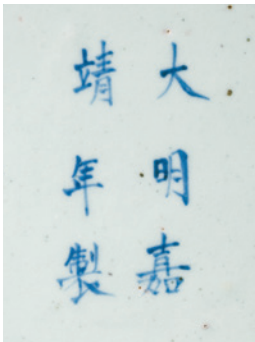 大明嘉
靖年製